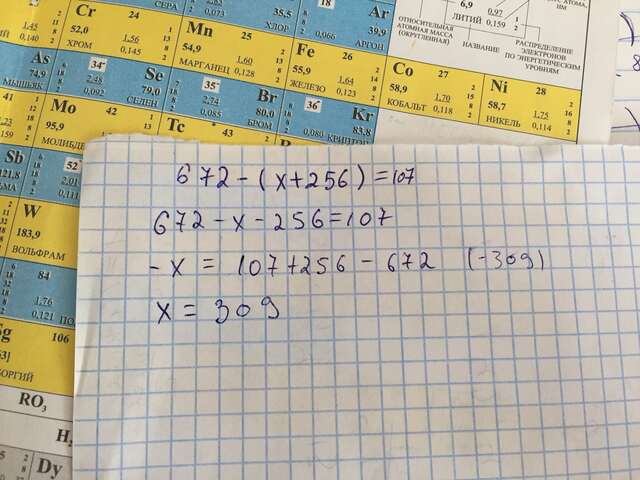 Cr 24
52,0
ХРОМ
1,56
0,145
Mn 25
54,9
МАРГАНЕЦ
1,60
0,128
35,5
ХЛОР
0,073
0,066
18 Ar
39,9
АРГОН
Fe 26
55,9
ЖЕЛЕЗО
1,64
0,123
Co 27
58,9
КОБАЛЬТ
1,70
0,118
Ni 28
58,7
НИКЕЛЬ
1,75
0,114
6,9 0,97
ЛИТИЙ 0,159
ОТНОСИТЕЛЬНАЯ
АТОМНАЯ МАССА
(ОКРУГЛЕННАЯ)
НАЗВАНИЕ
РАСПРЕДЕЛЕНИЕ
ЭЛЕКТРОНОВ
ПО ЭНЕРГЕТИЧЕСКИМ
УРОВНЯМ
As
74,9
МЫШЬЯК
34 Se
79,0
СЕЛЕН
2,48
0,092
35 Br
80,0
БРОМ
2,74
0,085
36 Kr
83,8
КРИПТОН
0,080
Mo 42
95,9
Tc 43
Sb
121,8
52
2,01
W
183,9
ВОЛЬФРАМ
84
1,76
0,121
Sg 106
RO3
Dy
672-(x+256)=107
672-x-256=107
-x = 107+256-672 (-309)
x = 309